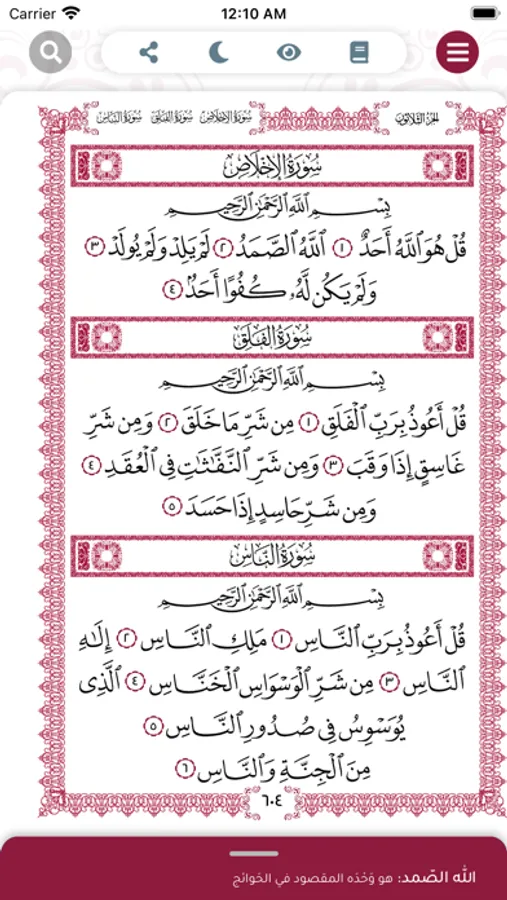 Carrier 12:10 AM
الجزء الثلاثون سورة الإخلاص سورة الفلق سورة الناس
سُورَةُ الإِخْلَاصِ
بِسْمِ ٱللَّهِ ٱلرَّحْمَٰنِ ٱلرَّحِيمِ
قُلْ هُوَ ٱللَّهُ أَحَدٌ ١ ٱللَّهُ ٱلصَّمَدُ ٢ لَمْ يَلِدْ وَلَمْ يُولَدْ ٣
وَلَمْ يَكُن لَّهُۥ كُفُوًا أَحَدٌۢ ٤
سُورَةُ الفَلَقِ
بِسْمِ ٱللَّهِ ٱلرَّحْمَٰنِ ٱلرَّحِيمِ
قُلْ أَعُوذُ بِرَبِّ ٱلْفَلَقِ ١ مِن شَرِّ مَا خَلَقَ ٢ وَمِن شَرِّ
غَاسِقٍ إِذَا وَقَبَ ٣ وَمِن شَرِّ ٱلنَّفَّٰثَٰتِ فِي ٱلْعُقَدِ ٤
وَمِن شَرِّ حَاسِدٍ إِذَا حَسَدَ ٥
سُورَةُ النَّاسِ
بِسْمِ ٱللَّهِ ٱلرَّحْمَٰنِ ٱلرَّحِيمِ
قُلْ أَعُوذُ بِرَبِّ ٱلنَّاسِ ١ مَلِكِ ٱلنَّاسِ ٢ إِلَٰهِ
ٱلنَّاسِ ٣ مِن شَرِّ ٱلْوَسْوَاسِ ٱلْخَنَّاسِ ٤ ٱلَّذِي
يُوَسْوِسُ فِي صُدُورِ ٱلنَّاسِ ٥
مِنَ ٱلْجِنَّةِ وَٱلنَّاسِ ٦
٦٠٤
الله الصّمد: هو وَحْده المقصود في الحَوائج